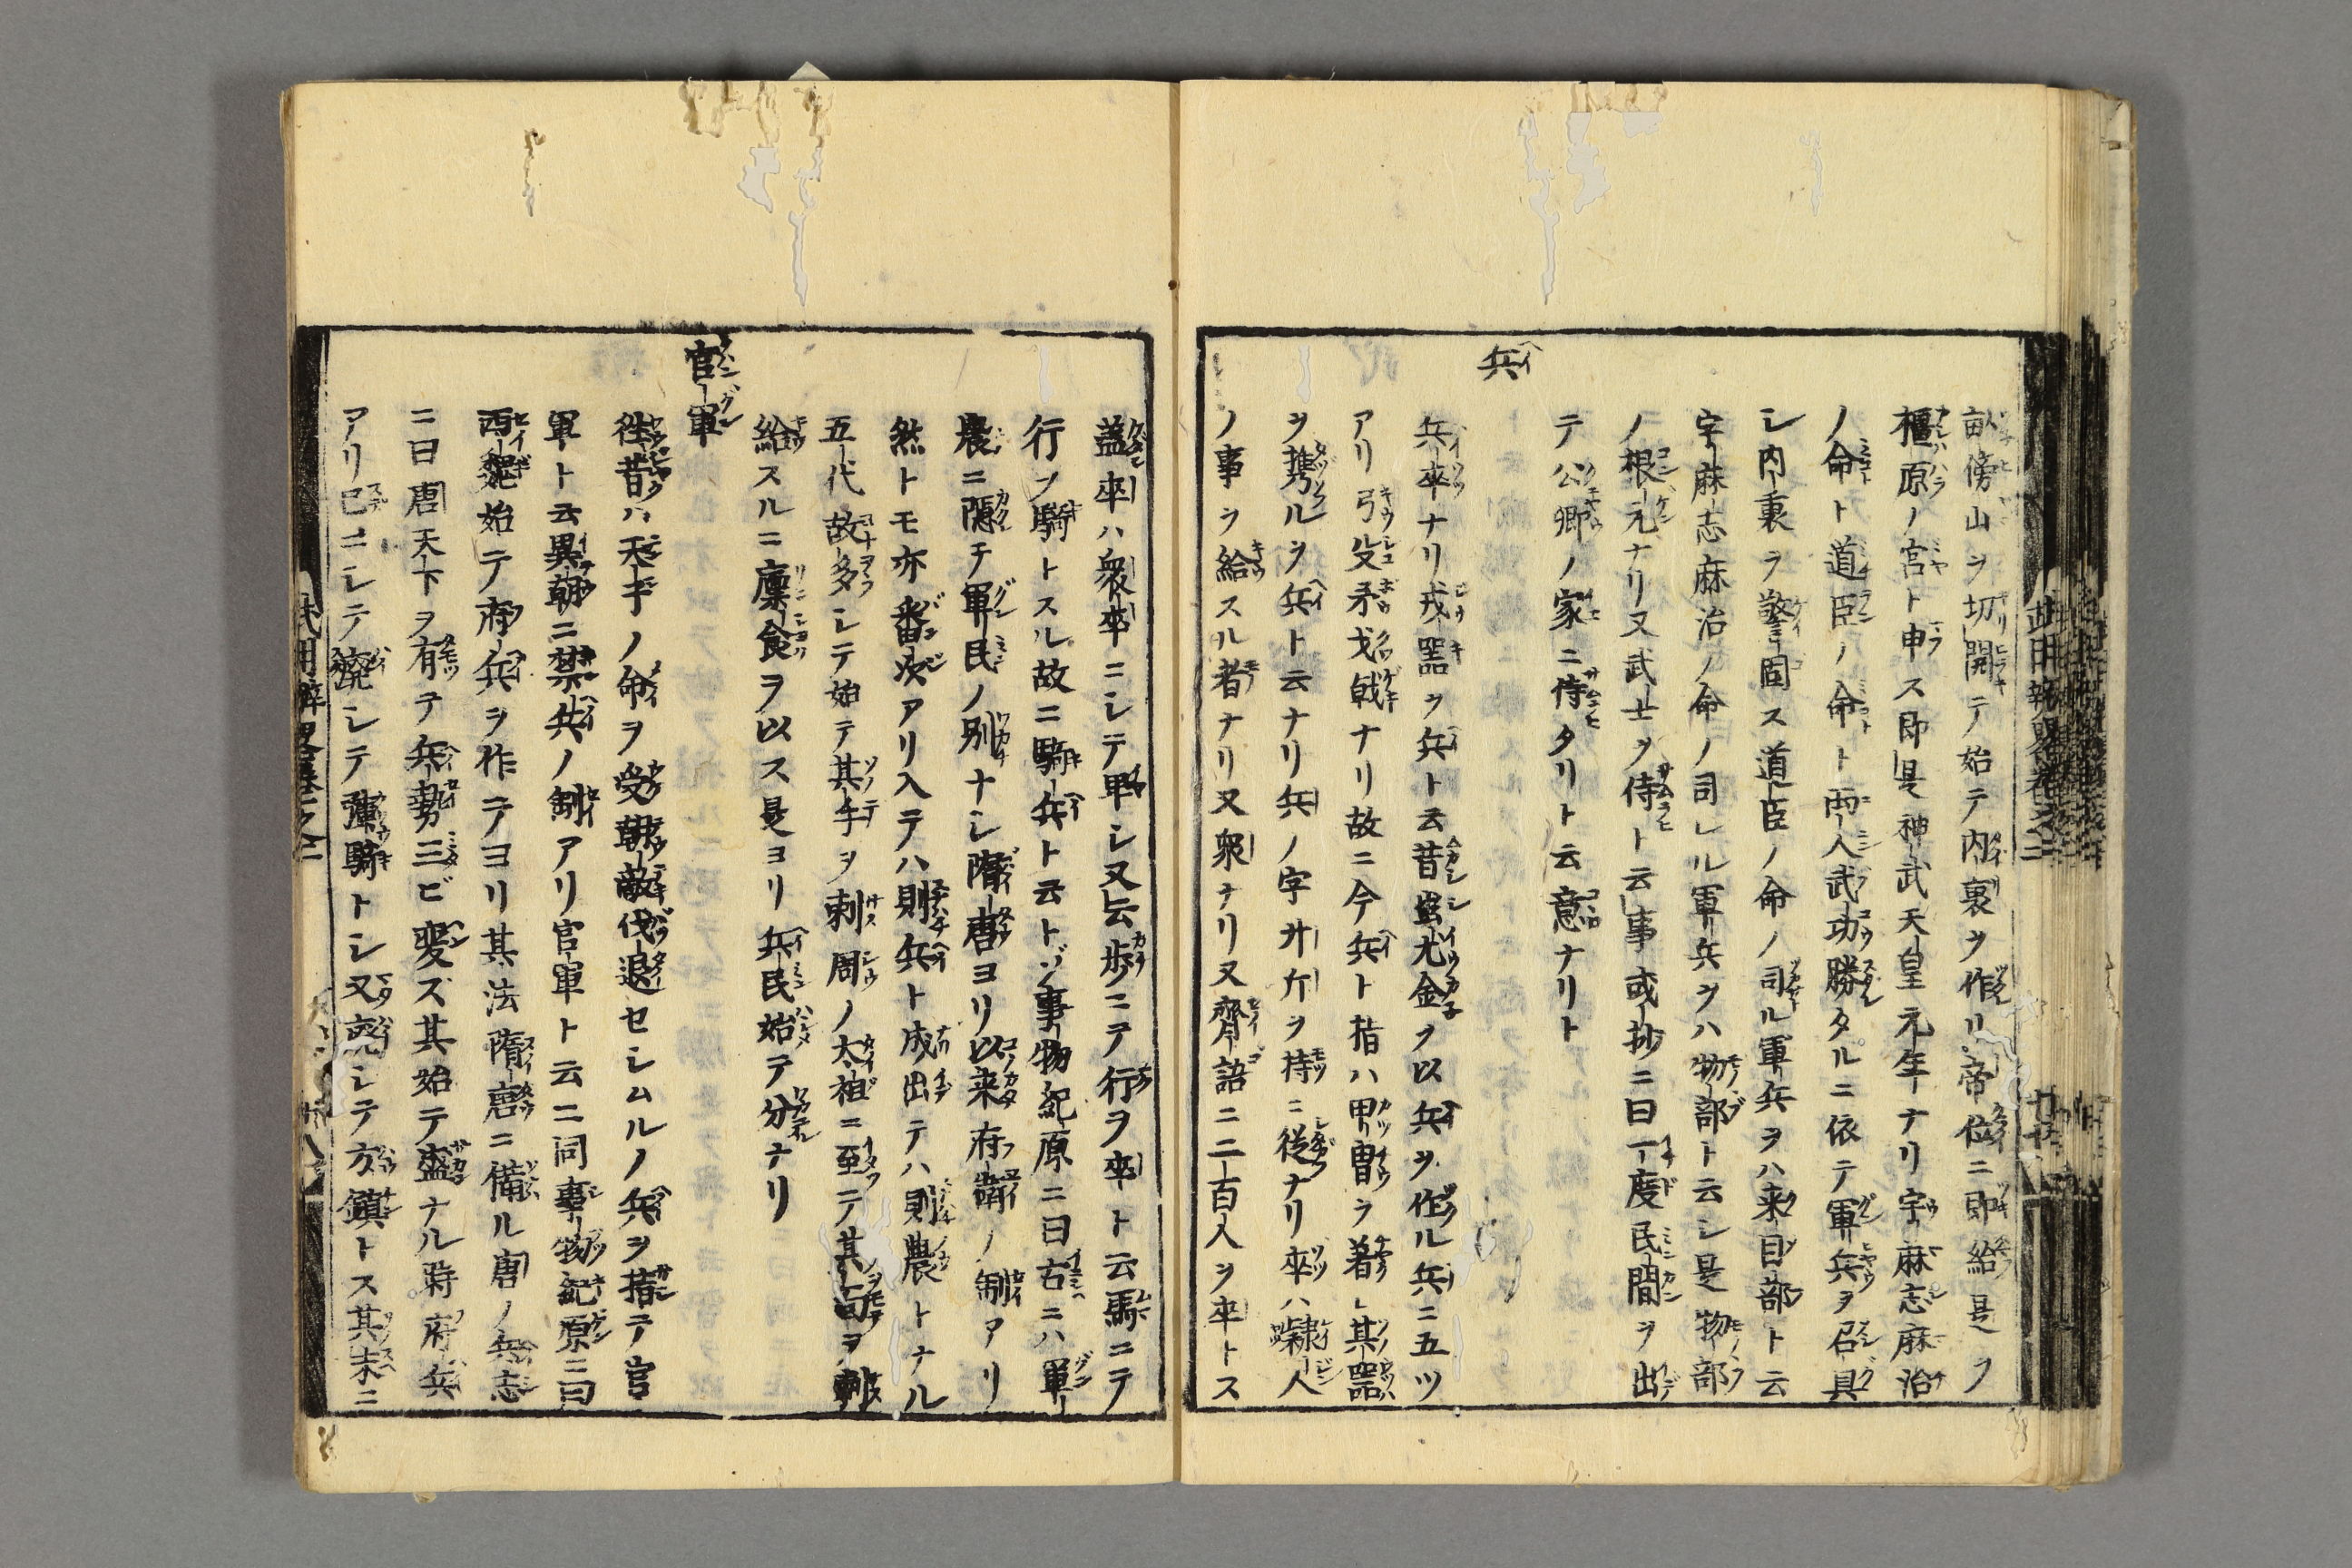 畝傍山ヲ切開テ始テ内裏ヲ作リ帝位ニ即給是ヲ
橿原ノ宮ト申ス即是神武天皇元年ナリ宇麻志麻治
ノ命ト道臣ノ命ト両人武功勝タルニ依テ軍兵ヲ召具
シ内裏ヲ警固ス道臣ノ命ノ司ル軍兵ヲハ来目部ト云
宇麻志麻治ノ命ノ司レル軍兵ヲハ物部ト云シ是物部
ノ根元ナリ又武士ヲ侍ト云事或抄ニ曰一度民間ヲ出
テ公卿ノ家ニ侍タリト云意ナリト
兵
兵卒ナリ戎噐ヲ兵ト云昔蚩尤金ヲ以兵ヲ作ル兵ニ五ツ
アリ弓殳矛戈戟ナリ故ニ今兵ト指ハ甲冑ヲ着シ其噐
ヲ携ルヲ兵ト云ナリ兵ノ字廾斤ヲ持ニ従ナリ卒ハ隷人
ノ事ヲ給スル者ナリ又衆ナリ又齊語ニ二百人ヲ卒トス
蓋卒ハ衆卒ニシテ甲シ又云歩ニテ行ヲ卒ト云騎ニテ
行ヲ騎トスル故ニ騎兵ト云トゾ事物紀原ニ曰古ニハ軍
農ニ隠テ軍民ノ別ナシ隋唐ヨリ以来府衛ノ制アリ
然トモ亦番次アリ入テハ則兵ト成出テハ則農トナル
五代故多シテ始テ其手ヲ刺周ノ太祖ニ至テ其面ヲ刺
給スルニ廩食ヲ以ス是ヨリ兵民始テ分ナリ
官軍
往昔ハ天子ノ命ヲ受朝敵伐退セシムルノ兵ヲ指テ官
軍ト云異朝ニ禁兵ノ制アリ官軍ト云ニ同事物紀原ニ曰
西魏始テ府兵ヲ作テヨリ其法隋唐ニ備ル唐ノ兵志
ニ曰唐天下ヲ有テ兵勢三ビ変ス其始テ盛ナル時府兵
アリ已ニシテ廃シテ彍騎トシ又廃シテ方鎮トス其末ニ
武用辨畧巻之二
十八